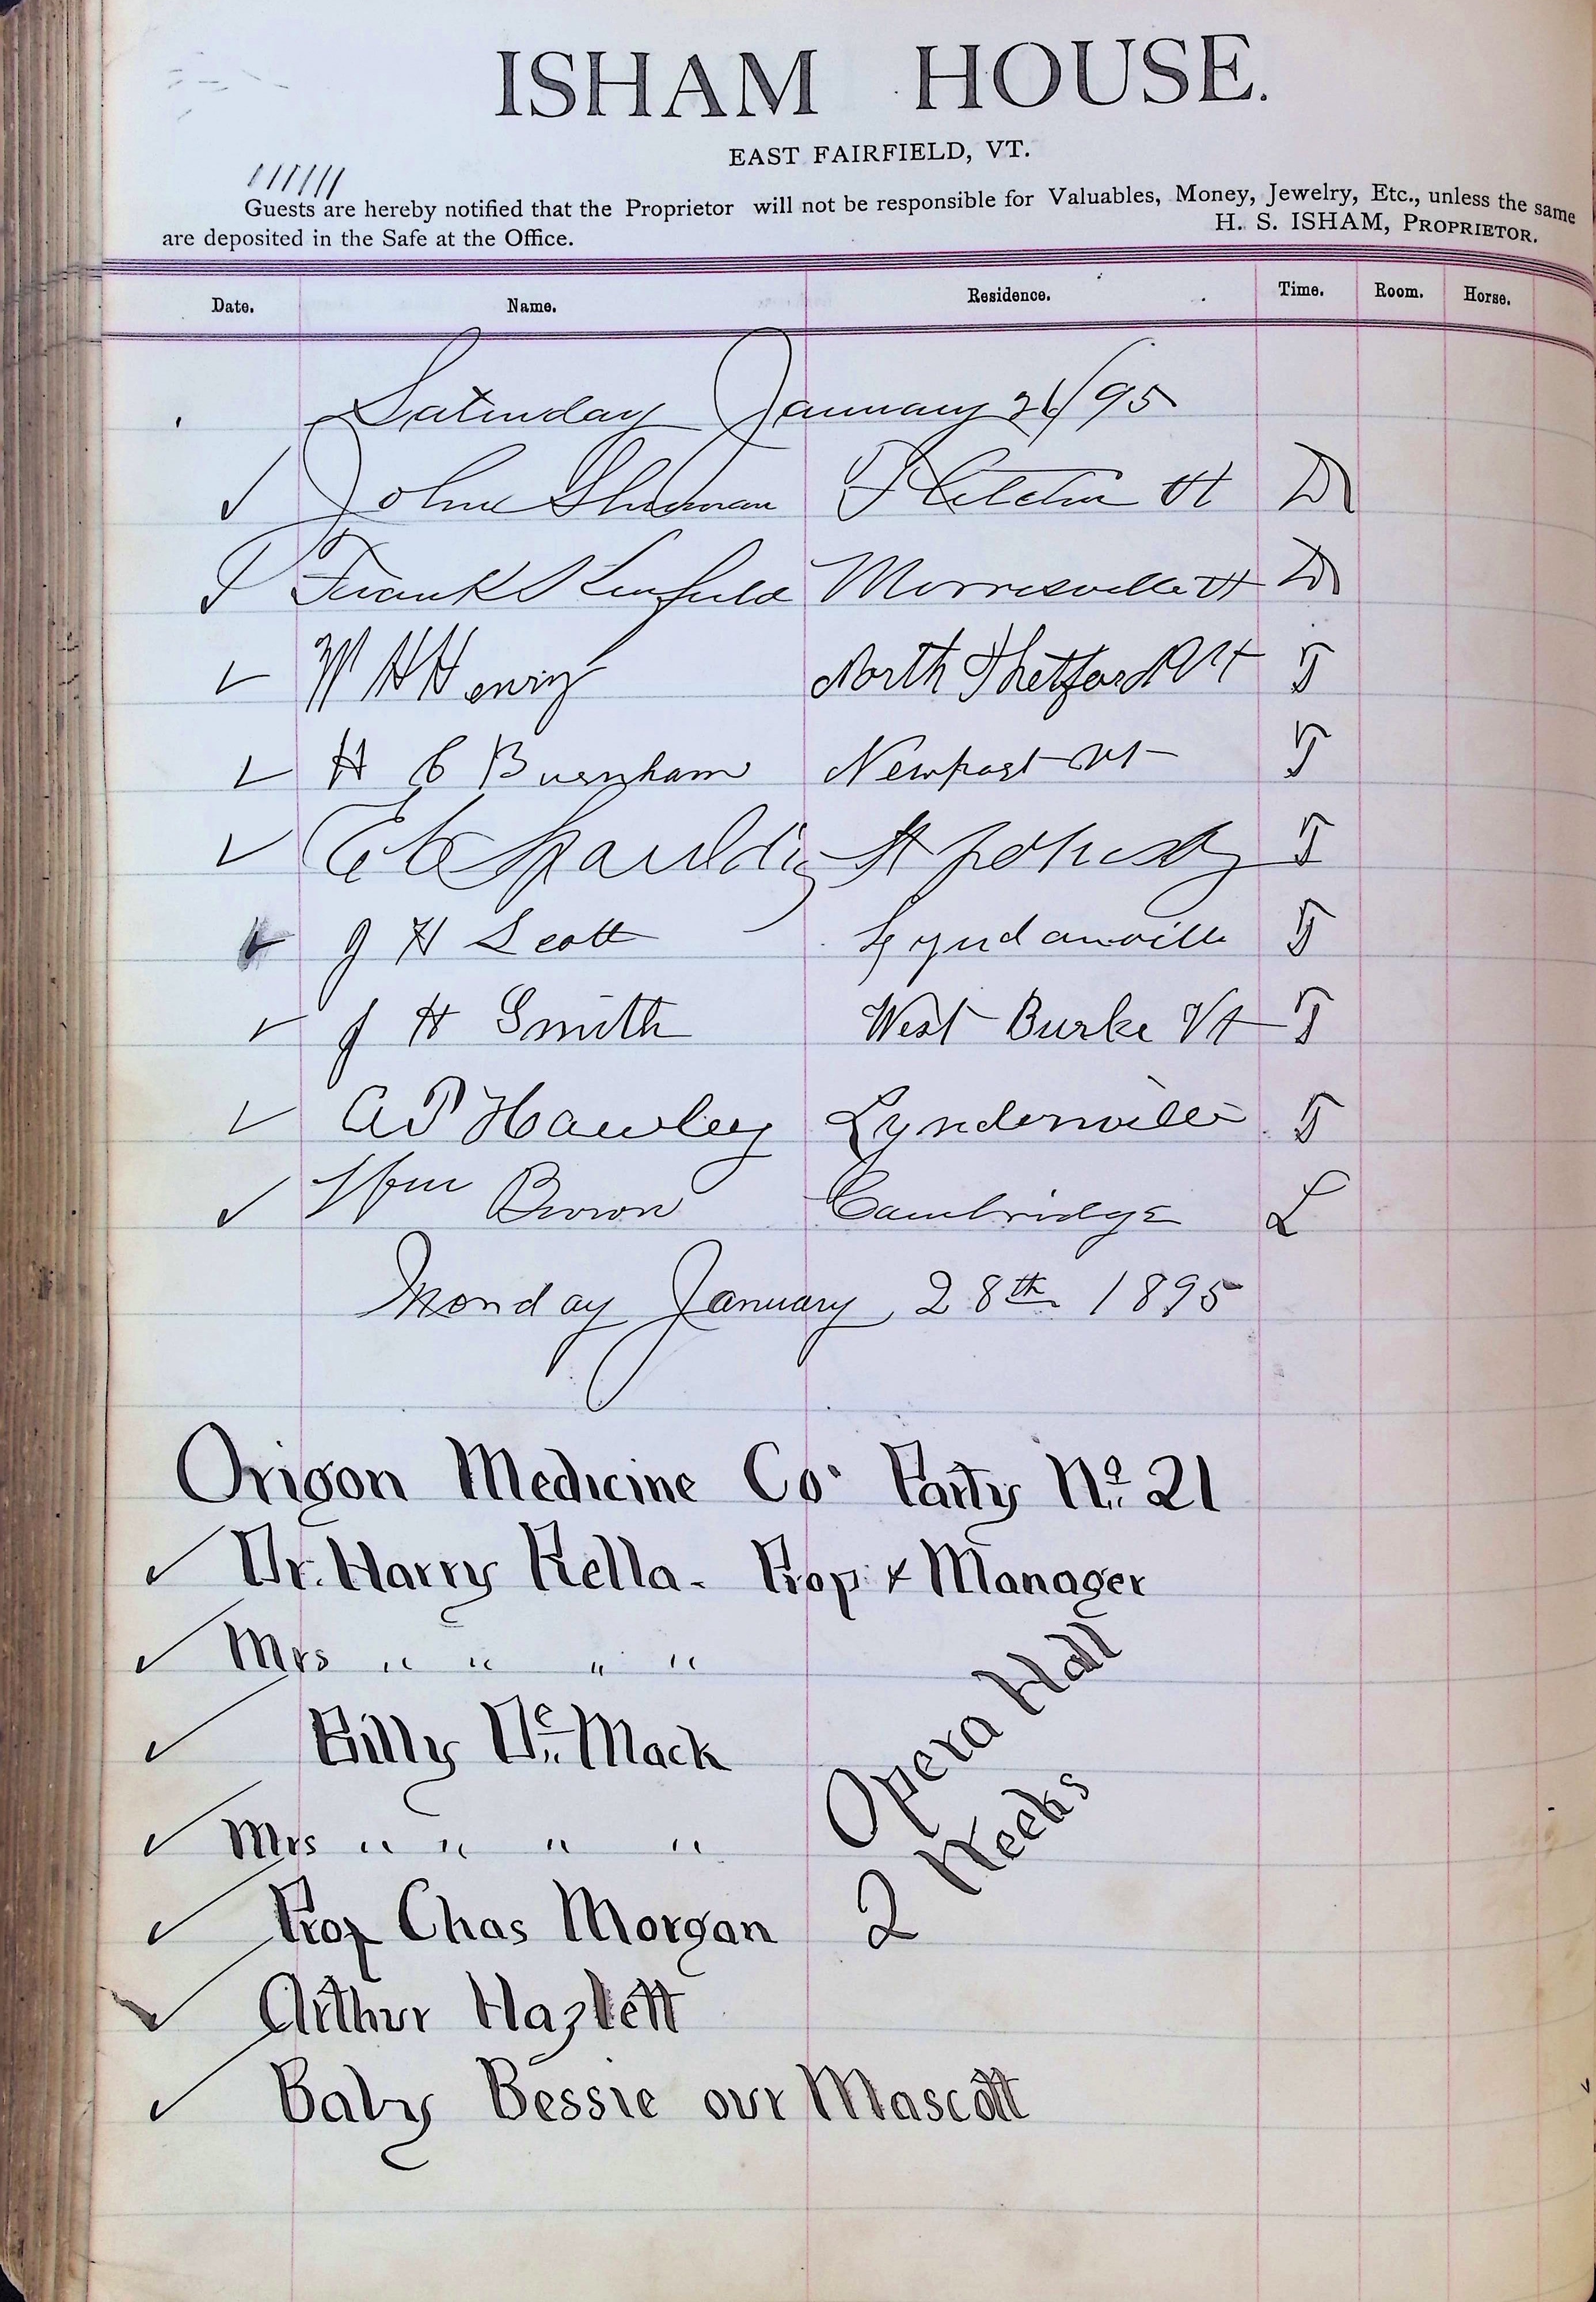 ISHAM HOUSE.
EAST FAIRFIELD, VT.
Guests are hereby notified that the Proprietor will not be responsible for Valuables, Money, Jewelry, Etc., unless the same
are deposited in the Safe at the Office. H. S. ISHAM, PROPRIETOR.
Date. Name. Residence. Time. Room. Horse.
Saturday January 26/95
John Fletcher Vt D
Frank Morrisville Vt D
W H Henry North Thetford Vt T
H C Burnham Newport Vt T
E C Spaulding St Johnsby T
J H Scott Lyndonville T
J H Smith West Burke Vt T
A P Hawley Lyndonville T
Wm Brown Cambridge L
Monday January 28th 1895
Origon Medicine Co. Party No. 21
Dr. Harry Rella - Prop & Manager
Mrs " " " "
Billy De Mack
Mrs " " " "
Opera Hall
2 Weeks
Prof Chas Morgan
Arthur Hazlett
Baby Bessie our Mascott